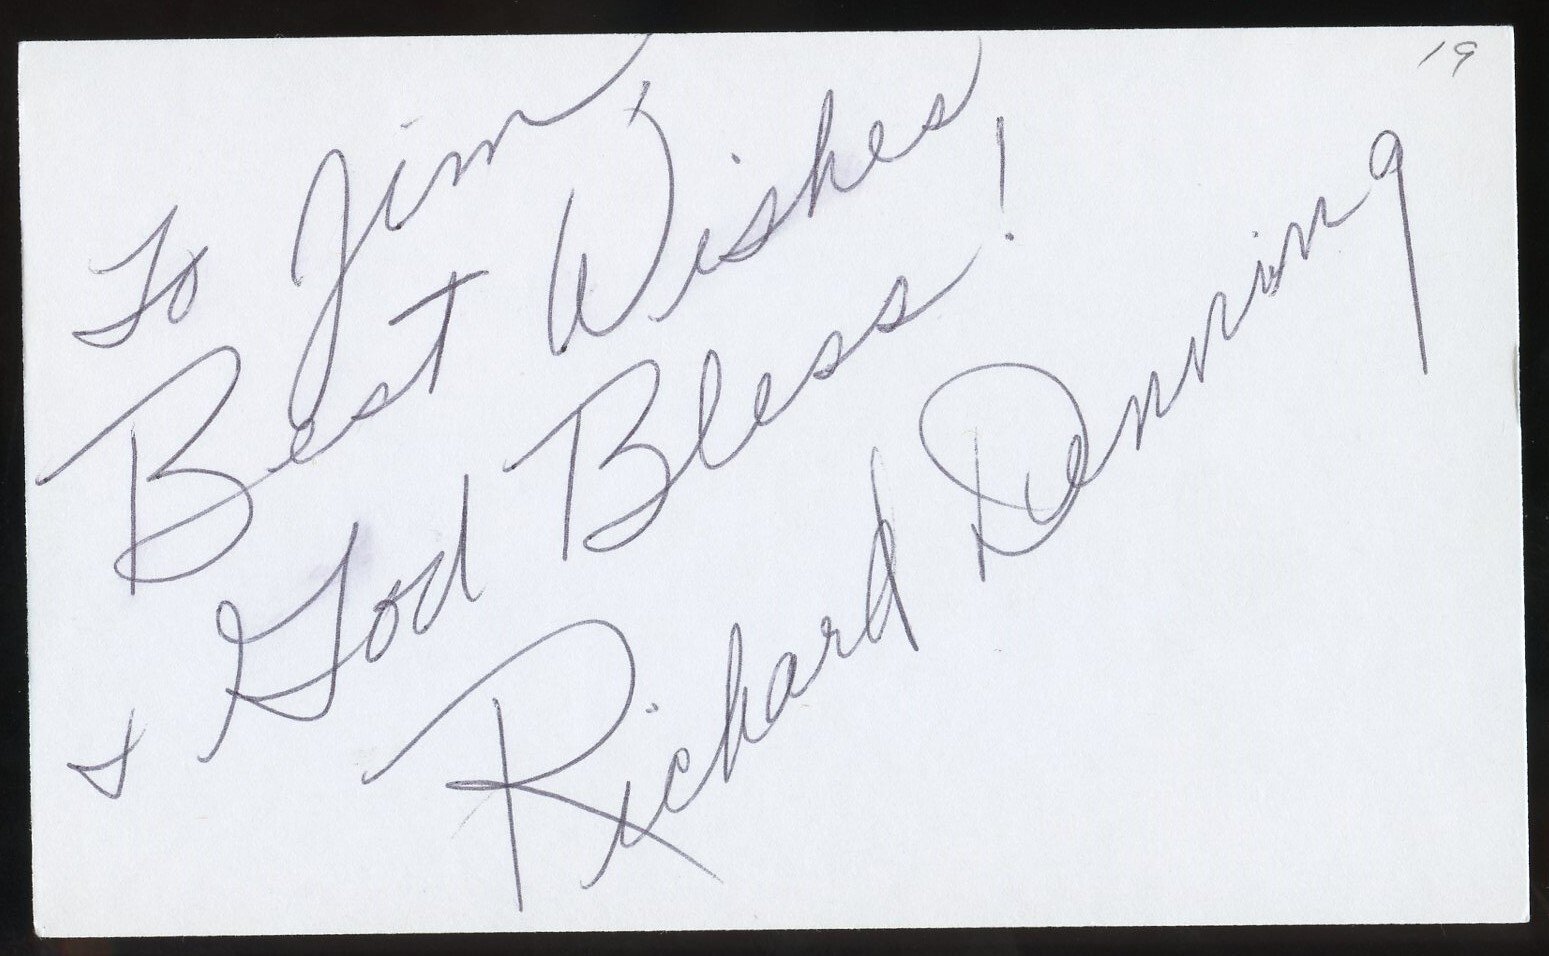 19
To Jim,
Best Wishes
+ God Bless!
Richard Denning